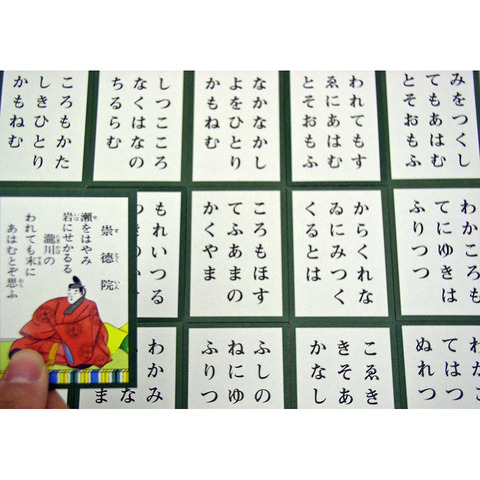 みをつくし
てもあはむ
とそおもふ
われてもす
ゑにあはむ
とそおもふ
なかなかし
よをひとり
かもねむ
しつこころ
なくはなの
ちるらむ
ころもかた
しきひとり
かもねむ
わかころも
てにゆきは
ふりつつ
からくれな
ゐにみつく
くるとは
ころもほす
てふあまの
かくやま
もれいつる
崇徳院
瀬をはやみ
岩にせかるる
瀧川の
われても末に
あはむとぞ思ふ
わかこ
てはつ
ぬれつ
こゑき
きそあ
かなし
ふしの
ねにゆ
ふりつ
わかみ
な
ま